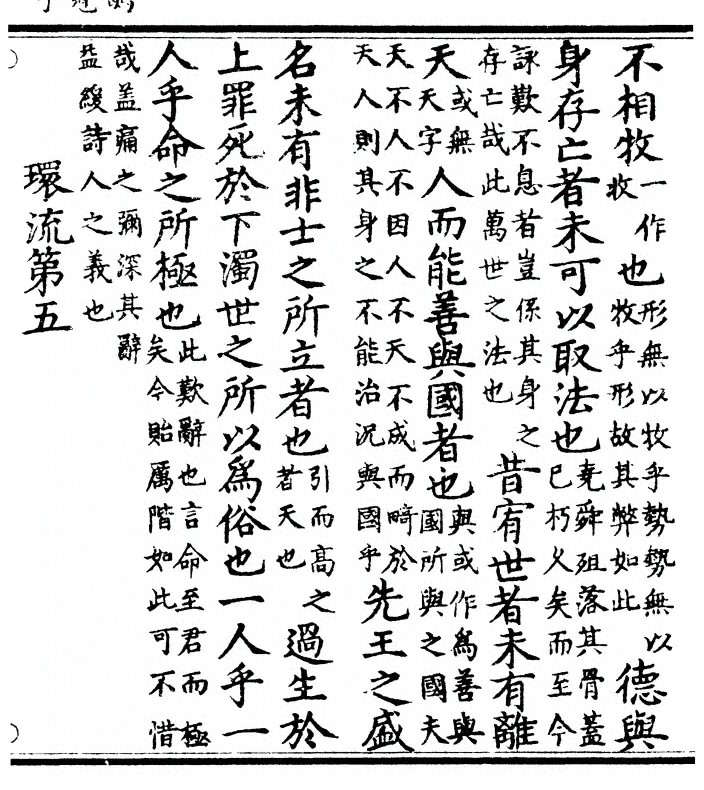 不相牧一作收也形無以牧乎勢勢無以牧乎形故其弊如此德與
身存亡者未可以取法也堯舜殂落其骨蓋已朽久矣而至今
詠歎不息者豈係其身之存亡哉此萬世之法也昔宥世者未有離
天或無天字人而能善與國者也與或作為善與國所與之國夫
天不人不因人不天不成而畸於天人則其身之不能治況與國乎先王之盛
名未有非士之所立者也引而高之者天也過生於
上罪死於下濁世之所以為俗也一人乎一
人乎命之所極也此歎辭也言命至君而極矣今貽厲階如此可不惜
哉蓋痛之彌深其辭益緩詩人之義也
環流第五